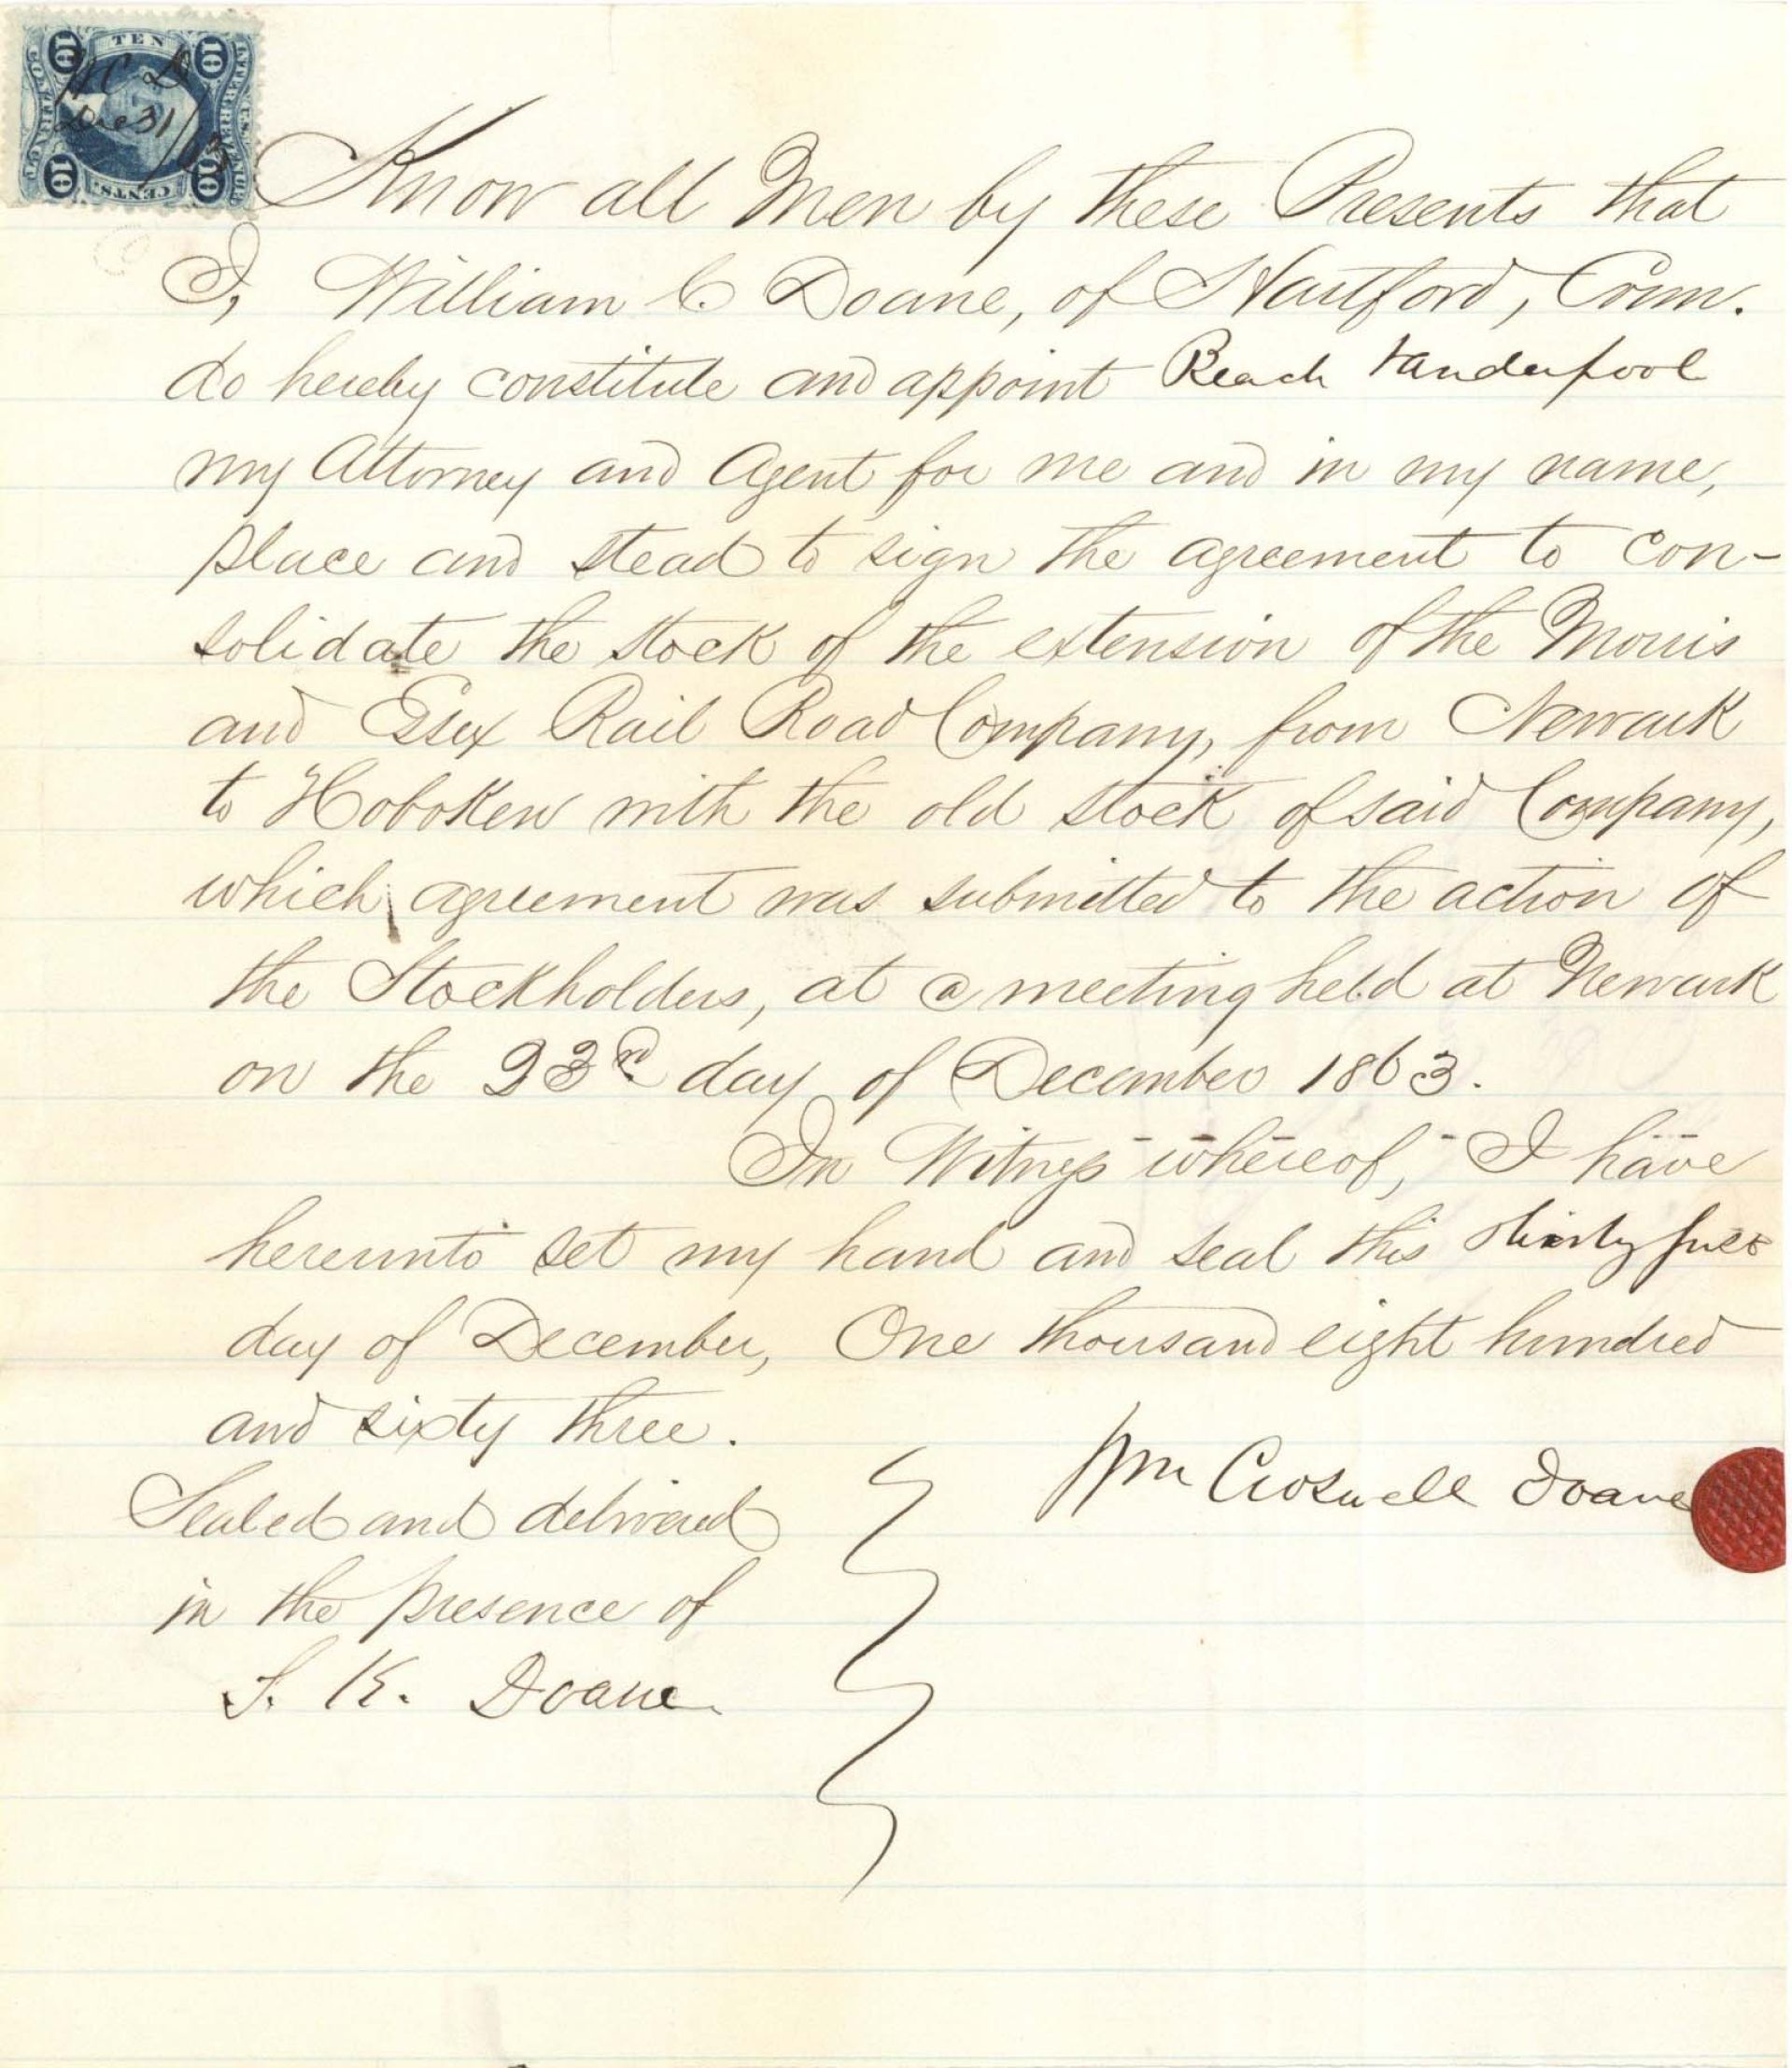 TEN
10 10
U.S. INTER. REVENUE
W C D
Dec 31/63
10 10
CENTS.
Know all Men by these Presents that
I, William C. Doane, of Hartford, Conn.
do hereby constitute and appoint Beach Vanderpool
my Attorney and Agent for me and in my name,
place and stead to sign the agreement to con-
solidate the stock of the extension of the Morris
and Essex Rail Road Company, from Newark
to Hoboken with the old stock of said Company,
which agreement was submitted to the action of
the Stockholders, at a meeting held at Newark
on the 23rd day of December 1863.
In Witness whereof, I have
hereunto set my hand and seal this thirty first
day of December, One thousand eight hundred
and sixty three.
Wm Croswell Doane
Sealed and delivered
in the presence of
S. K. Doane